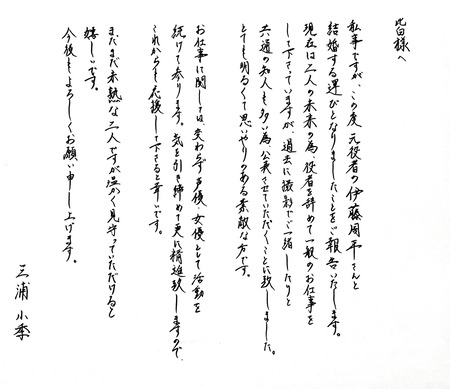 皆様へ
私事ですが、この度 元役者の伊藤周平さんと
結婚する運びとなりましたことをご報告いたします。
現在は二人の未来の為、役者を辞めて一般のお仕事を
して下さっていますが、過去に撮影でご一緒したりと
共通の知人も多い為、公表させていただくことに致しました。
とても明るくて思いやりのある素敵な方です。
お仕事に関しては、変わらず声優、女優として活動を
続けて参ります。気を引き締めて更に精進致しますので、
これからも応援して下さると幸いです。
まだまだ未熟な二人ですが温かく見守っていただけると
嬉しいです。
今後もよろしくお願い申し上げます。
三浦 小季